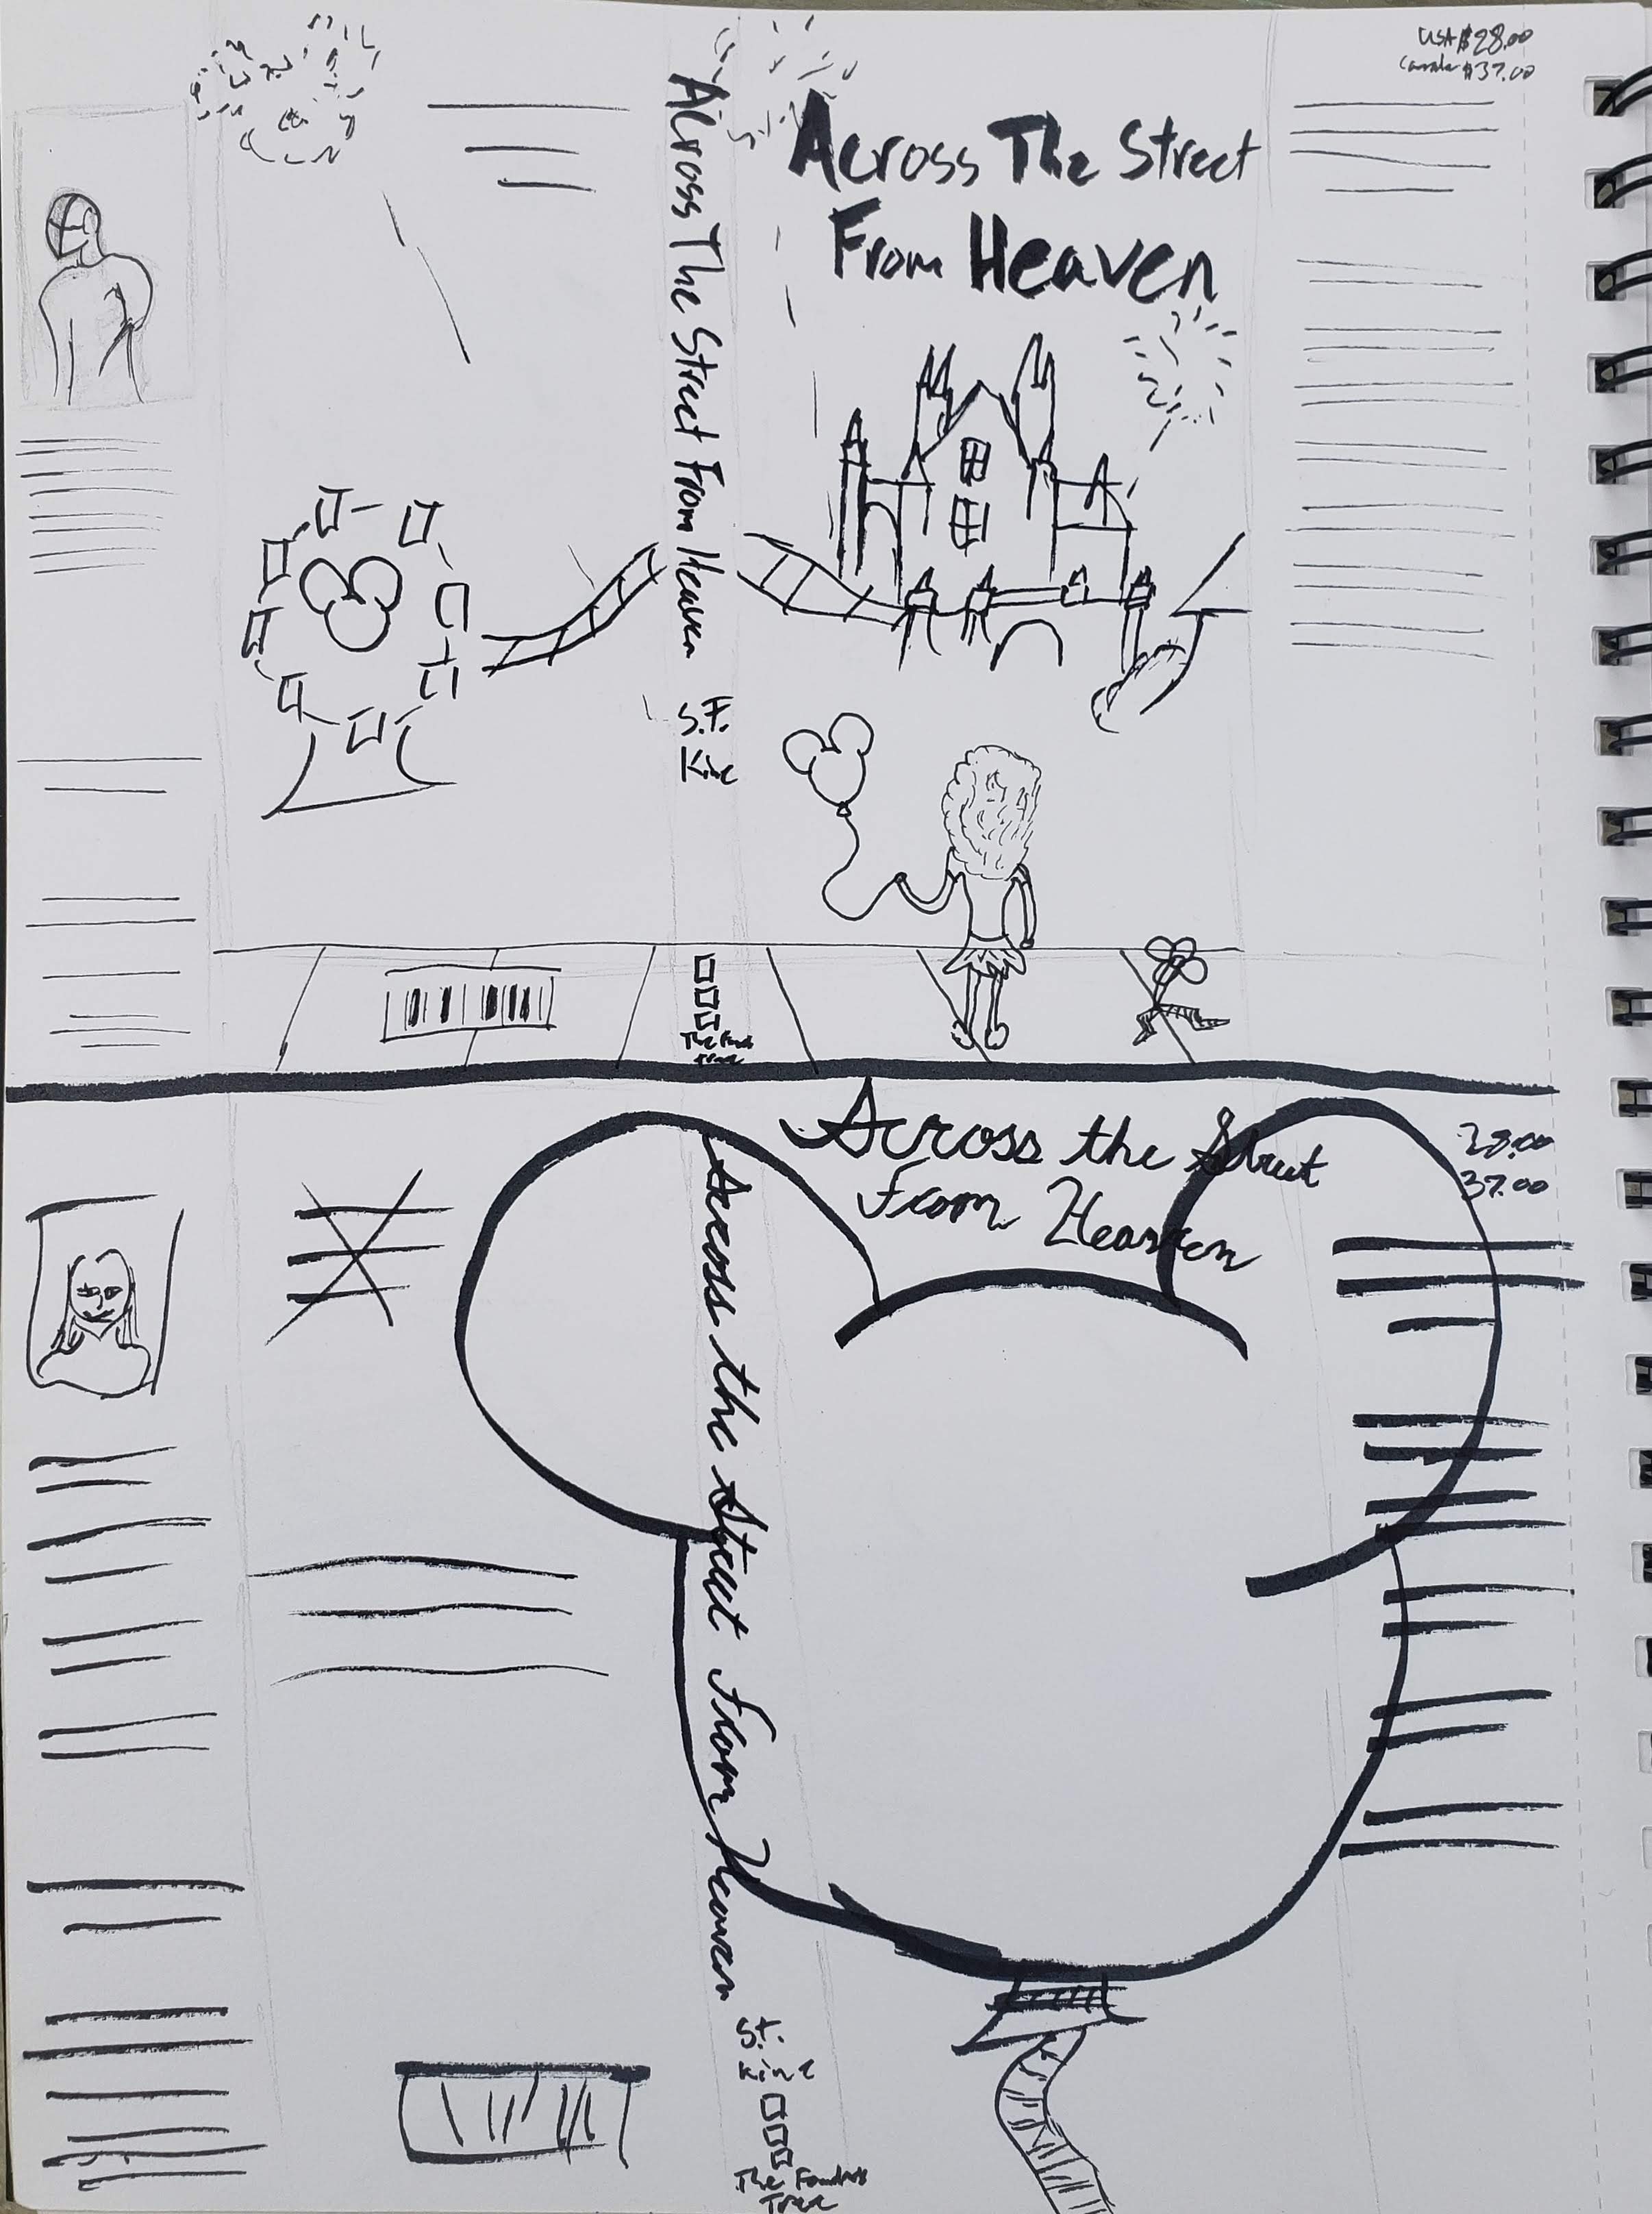 USA $28.00
Canada $37.00
Across The Street
From Heaven
Across The Street From Heaven
S.F.
Kine
The
Tree
Across the Street
From Heaven
28.00
37.00
Across the Street From Heaven
S.F.
Kine
The
Tree